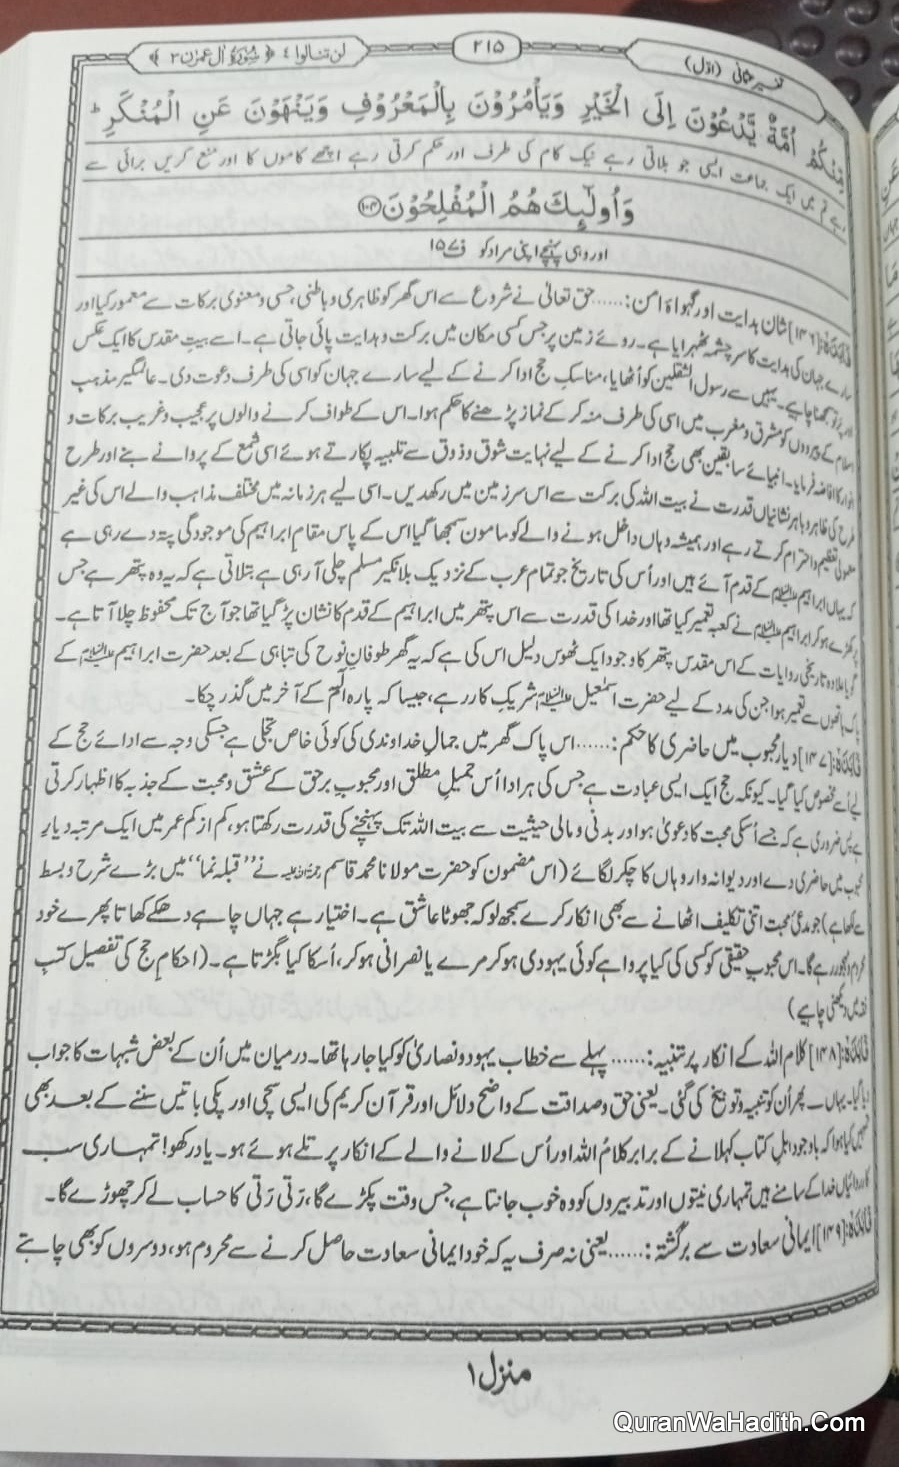 تفسیر عثمانی (اوّل)
۲۱۵
لن تنالوا ٤ ﴿ سُورَةُ اٰلِ عِمْرٰن ۳ ﴾
مِّنْكُمْ اُمَّةٌ يَّدْعُوْنَ اِلَى الْخَيْرِ وَيَاْمُرُوْنَ بِالْمَعْرُوْفِ وَيَنْهَوْنَ عَنِ الْمُنْكَرِ ؕ
تم میں ایک جماعت ایسی جو بلاتی رہے نیک کام کی طرف اور حکم کرتی رہے اچھے کاموں کا اور منع کریں برائی سے
وَاُولٰٓئِكَ هُمُ الْمُفْلِحُوْنَ ﴿۱۰۴﴾
اور وہی پہنچے اپنی مراد کو ف ۱۵۷
فَائِدَہ: [۱۳۶] شان ہدایت اور گہوارۂ امن: ...... حق تعالیٰ نے شروع سے اس گھر کو ظاہری و باطنی، حسی و معنوی برکات سے معمور کیا اور
سارے جہان کی ہدایت کا سرچشمہ ٹھہرایا ہے۔ روئے زمین پر جس کسی مکان میں برکت و ہدایت پائی جاتی ہے۔ اسے بیت مقدس کا ایک عکس
اور پرتو سمجھنا چاہیے۔ یہیں سے رسول الثقلین کو اُٹھایا، مناسکِ حج ادا کرنے کے لیے سارے جہان کو اسی کی طرف دعوت دی۔ عالمگیر مذہب
اسلام کے پیرووں کو مشرق و مغرب میں اسی کی طرف منہ کر کے نماز پڑھنے کا حکم ہوا۔ اس کے طواف کرنے والوں پر عجیب و غریب برکات و
انوار کا افاضہ فرمایا۔ انبیائے سابقین بھی حج ادا کرنے کے لیے نہایت شوق و ذوق سے تلبیہ پکارتے ہوئے اسی شمع کے پروانے بنے اور طرح
طرح کی ظاہر و باہر نشانیاں قدرت نے بیت اللہ کی برکت سے اس سرزمین میں رکھدیں۔ اسی لیے ہر زمانہ میں مختلف مذاہب والے اس کی غیر
معمولی تعظیم و احترام کرتے رہے اور ہمیشہ وہاں داخل ہونے والے کو مامون سمجھا گیا اس کے پاس مقام ابراہیم کی موجودگی پتہ دے رہی ہے
کہ یہاں ابراہیم علیہ السلام کے قدم آئے ہیں اور اُس کی تاریخ جو تمام عرب کے نزدیک بلا نکیر مسلم چلی آ رہی ہے بتلاتی ہے کہ یہ وہ پتھر ہے جس
پر کھڑے ہو کر ابراہیم علیہ السلام نے کعبہ تعمیر کیا تھا اور خدا کی قدرت سے اس پتھر میں ابراہیم کے قدم کا نشان پڑ گیا تھا جو آج تک محفوظ چلا آتا ہے۔
گویا علاوہ تاریخی روایات کے اس مقدس پتھر کا وجود ایک ٹھوس دلیل اس کی ہے کہ یہ گھر طوفانِ نوح کی تباہی کے بعد حضرت ابراہیم علیہ السلام کے
پاک ہاتھوں سے تعمیر ہوا جن کی مدد کے لیے حضرت اسمٰعیل علیہ السلام شریک کار رہے، جیسا کہ پارہ الٓمٓ کے آخر میں گذر چکا۔
فَائِدَہ: [۱۳۷] دیارِ محبوب میں حاضری کا حکم: ...... اس پاک گھر میں جمالِ خداوندی کی کوئی خاص تجلی ہے جسکی وجہ سے ادائے حج کے
لیے اُسے مخصوص کیا گیا۔ کیونکہ حج ایک ایسی عبادت ہے جس کی ہر ادا اُس جمیلِ مطلق اور محبوبِ برحق کے عشق و محبت کے جذبہ کا اظہار کرتی
ہے پس ضروری ہے کہ جسے اُسکی محبت کا دعویٰ ہو اور بدنی و مالی حیثیت سے بیت اللہ تک پہنچنے کی قدرت رکھتا ہو، کم از کم عمر میں ایک مرتبہ دیارِ
محبوب میں حاضری دے اور دیوانہ وار وہاں کا چکر لگائے (اس مضمون کو حضرت مولانا محمد قاسم رحمۃ اللہ علیہ نے ”قبلہ نما“ میں بڑے شرح و بسط
سے لکھا ہے) جو مدعیٔ محبت اتنی تکلیف اٹھانے سے بھی انکار کرے سمجھ لو کہ جھوٹا عاشق ہے۔ اختیار ہے جہاں چاہے دھکے کھاتا پھرے خود
محروم و مہجور رہے گا۔ اس محبوبِ حقیقی کو کسی کی کیا پروا ہے کوئی یہودی ہو کر مرے یا نصرانی ہو کر، اُسکا کیا بگڑتا ہے۔ (احکامِ حج کی تفصیل کتب
فقہ میں دیکھنی چاہیے)
فَائِدَہ: [۱۳۸] کلام اللہ کے انکار پر تنبیہ: ...... پہلے سے خطاب یہود و نصاریٰ کو کیا جا رہا تھا۔ درمیان میں اُن کے بعض شبہات کا جواب
دیا گیا۔ یہاں سے پھر اُن کو تنبیہ و توبیخ کی گئی۔ یعنی حق و صداقت کے واضح دلائل اور قرآن کریم کی ایسی سچی اور پکی باتیں سننے کے بعد بھی
تمہیں کیا ہوا کہ باوجود اہلِ کتاب کہلانے کے برابر کلامُ اللہ اور اُس کے لانے والے کے انکار پر تلے ہوئے ہو۔ یاد رکھو! تمہاری سب
کارروائیاں خدا کے سامنے ہیں تمہاری نیتوں اور تدبیروں کو وہ خوب جانتا ہے، جس وقت پکڑے گا، رتی رتی کا حساب لے کر چھوڑے گا۔
فَائِدَہ: [۱۳۹] ایمانی سعادت سے برگشتہ: ...... یعنی نہ صرف یہ کہ خود ایمانی سعادت حاصل کرنے سے محروم ہو، دوسروں کو بھی چاہتے
منزل ۱
QuranWaHadith.Com